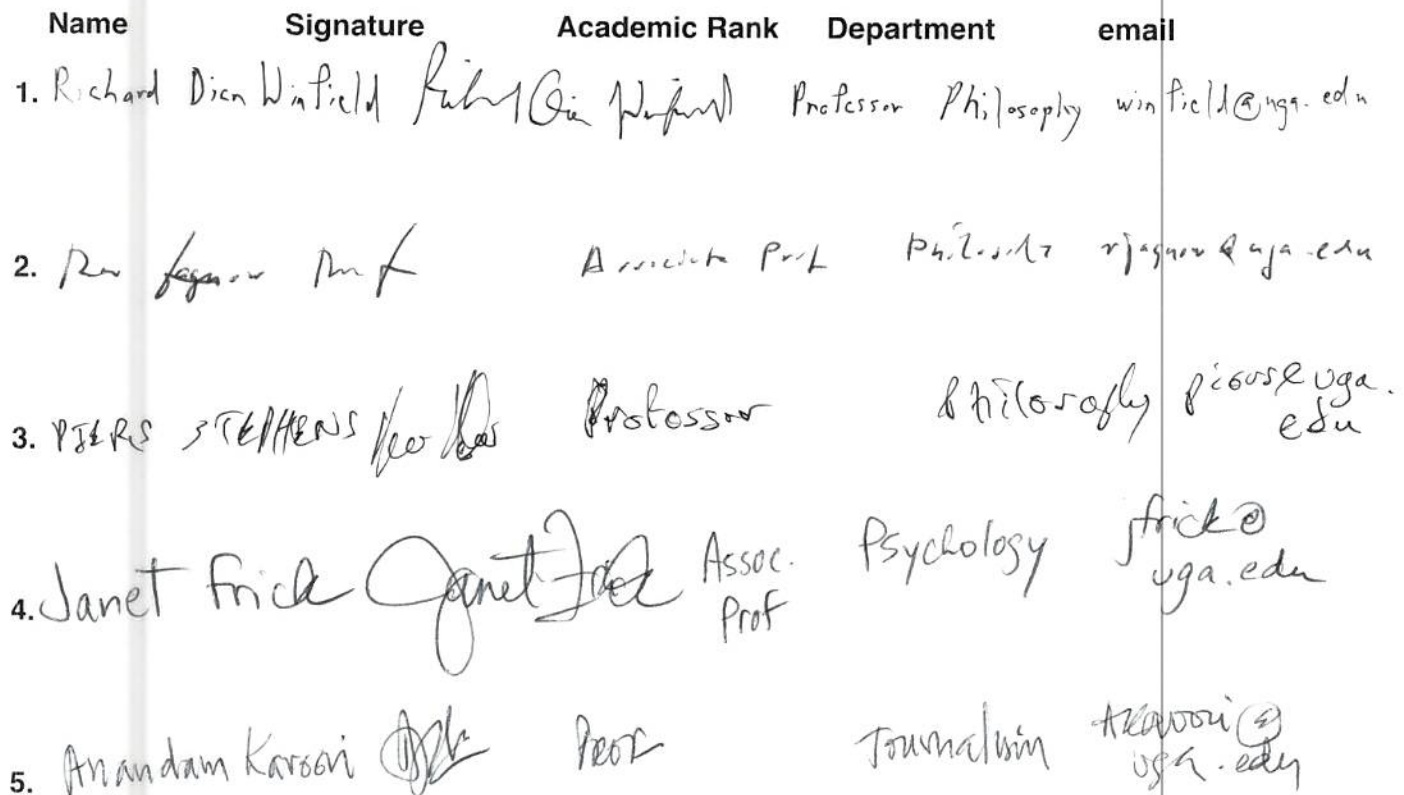 Name Signature Academic Rank Department email
1. Richard Dien Winfield Professor Philosophy winfield@uga.edu
2. Associate Prof rjagnow@uga.edu
3. PIERS STEPHENS Professor Philosophy
uga.
edu
4. Janet Frick Janet Frick Assoc. Prof Psychology jfrick@
uga.edu
5. Anandam Kavoori Prof Journalism Akavoori@
uga.edu